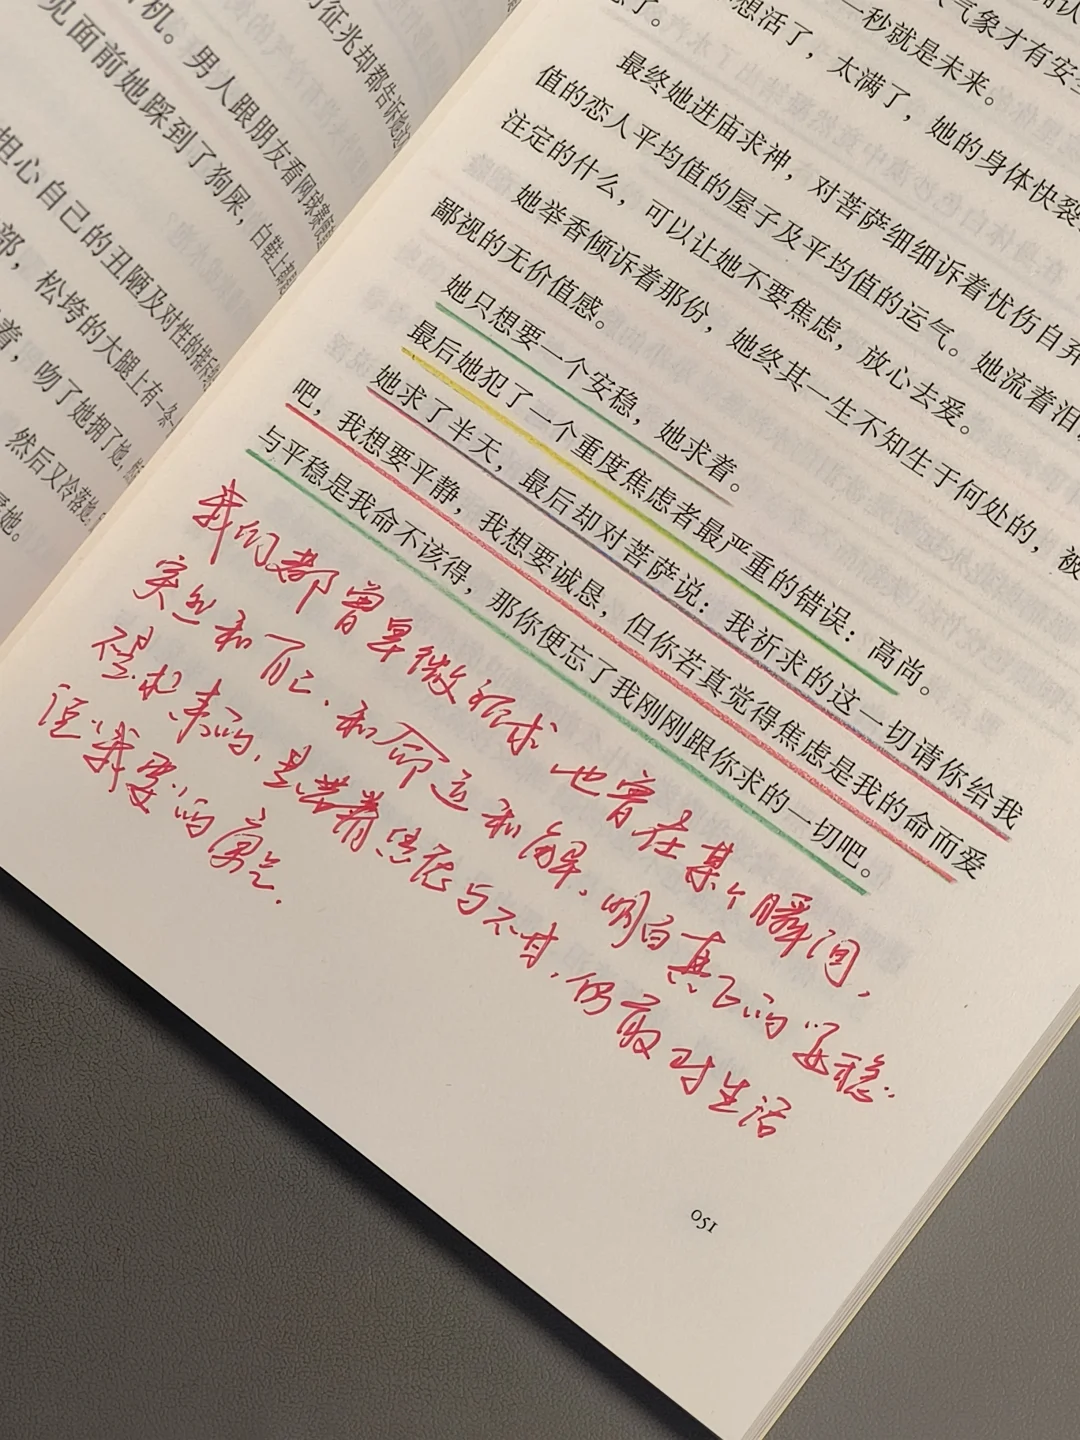 机。男人跟朋友看网球赛
见面前她踩到了狗屎，白鞋上
担心自己的丑陋及对性的
部，松垮的大腿上有一条
着，吻了她拥了她，
然后又冷落她，
她。
征兆却都告诉她
气象才有安全
一秒就是未来。
想活了，太满了，她的身体快裂
了。
最终她进庙求神，对菩萨细细诉着忧伤自弃
值的恋人平均值的屋子及平均值的运气。她流着泪
注定的什么，可以让她不要焦虑，放心去爱。
她举香倾诉着那份，她终其一生不知生于何处的，被
鄙视的无价值感。
她只想要一个安稳，她求着。
最后她犯了一个重度焦虑者最严重的错误：高尚。
她求了半天，最后却对菩萨说：我祈求的这一切请你给我
吧，我想要平静，我想要诚恳，但你若真觉得焦虑是我的命而爱
与平稳是我命不该得，那你便忘了我刚刚跟你求的一切吧。
我们都曾卑微祈求 也曾在某个瞬间，
突然和自己、和命运和解。明白真正的“安稳”
不是求来的，是带着焦虑与不甘，仍敢对生活
说“我要”的勇气。
051